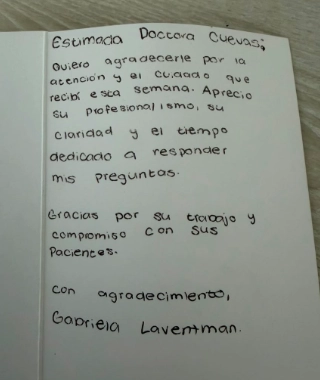 Estimada Doctora Cuevas;
Quiero agradecerle por la
atención y el cuidado que
recibí esta semana. Aprecio
su profesionalismo, su
claridad y el tiempo
dedicado a responder
mis preguntas.
Gracias por su trabajo y
compromiso con sus
Pacientes.
Con agradecimiento,
Gabriela Laventman.